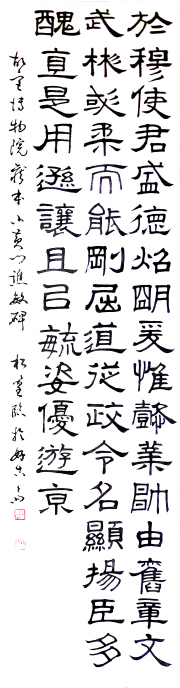 於穆使君盛德炤明爰惟懿業帥由舊章文
武彬彧柔而能剛屈道從政令名顯揚臣多
醜直是用遜讓且㠯毓姿優遊京
故宮博物院藏本小黃門譙敏碑 松堂臨於